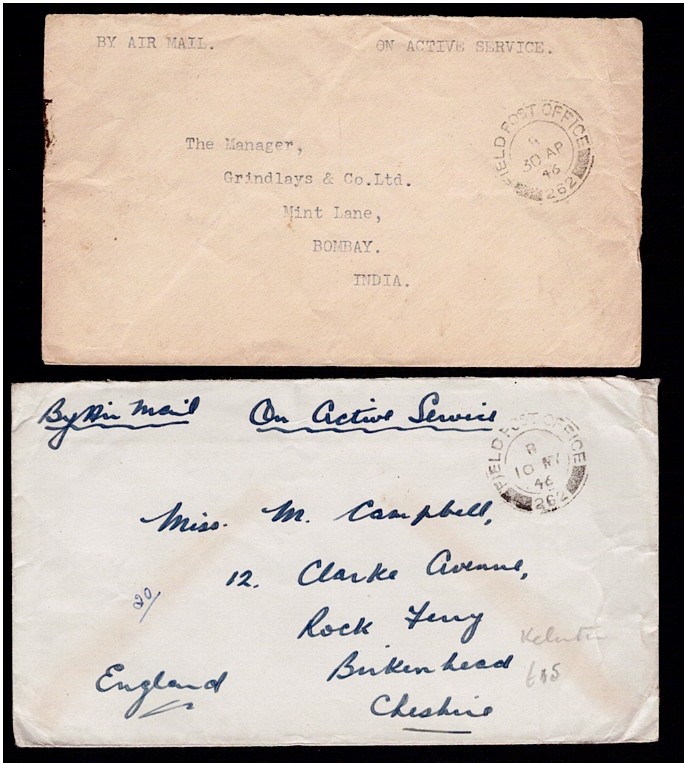 BY AIR MAIL. ON ACTIVE SERVICE.
FIELD POST OFFICE
30 AP
46
262
The Manager,
Grindlays & Co.Ltd.
Mint Lane,
BOMBAY.
INDIA.
By Air Mail On Active Service
FIELD POST OFFICE
B
10 MY
46
262
Miss. M. Campbell,
12. Clarke Avenue,
20/
Rock Ferry
Birkenhead
England
Cheshire
£15